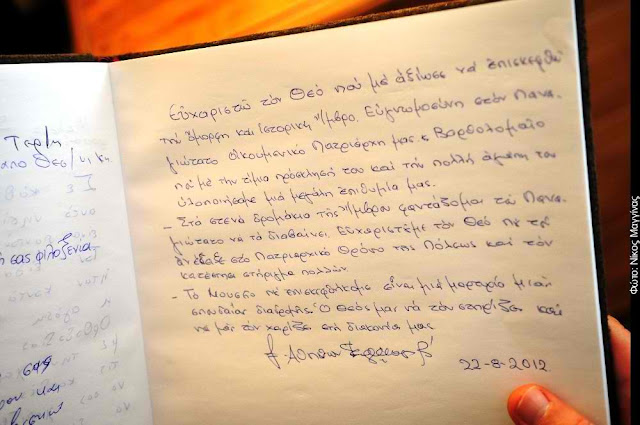 Τάρλη
από Θεσ/νίκη
σας φιλοξενία
σας
και
Εὐχαριστῶ τὸν Θεό ποὺ μὲ ἀξίωσε νὰ ἐπισκεφθῶ
τὴν ὄμορφη καὶ ἱστορικὴ Ἴμβρο. Εὐγνωμοσύνη στὸν Πανα-
γιώτατο Οἰκουμενικό Πατριάρχη μας κ. Βαρθολομαῖο
ποὺ μὲ τὴν τίμια πρόσκλησή του καὶ τὴν πολλή ἀγάπη του
ὑλοποιήσαμε μιά μεγάλη ἐπιθυμία μας.
- Στὰ στενά δρομάκια τῆς Ἴμβρου φαντάζομαι τὸν Πανα-
γιώτατο νὰ τὰ διαβαίνει. Εὐχαριστοῦμε τὸν Θεό πού τὸν
ἀνέδειξε στὸ Πατριαρχικό Θρόνο τῆς Πόλεως καὶ τὸν
κατέστησε στήριγμα πολλῶν
- Τὸ Μουσεῖο πού ἐπισκεφθήκαμε εἶναι μιά μαρτυρία μιᾶς
σπουδαίας διαδρομῆς. Ὁ Θεός μας νὰ τὸν στηρίζει καὶ
νὰ μᾶς τὸν χαρίζει στή διακονία μας
† Ὁ Ἀθηνῶν Ἱερώνυμος Β'
22-8-2012
Φώτο: Νίκος Μαγγίνας